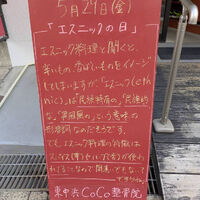 5月29日(金)
「エスニックの日」
エスニック料理と聞くと、
辛いもの、香ばしいものをイメージ
してしまいますが「エスニック(ethnic)」
は「民族特有の」「民族的
な」「異国風の」という意味の
形容詞なのだそうです。
でも、エスニック料理の特徴は
スパイス(香)やハーブ(香)が使わ
れることなので間違いでもないで
東中浜CoCo整骨院